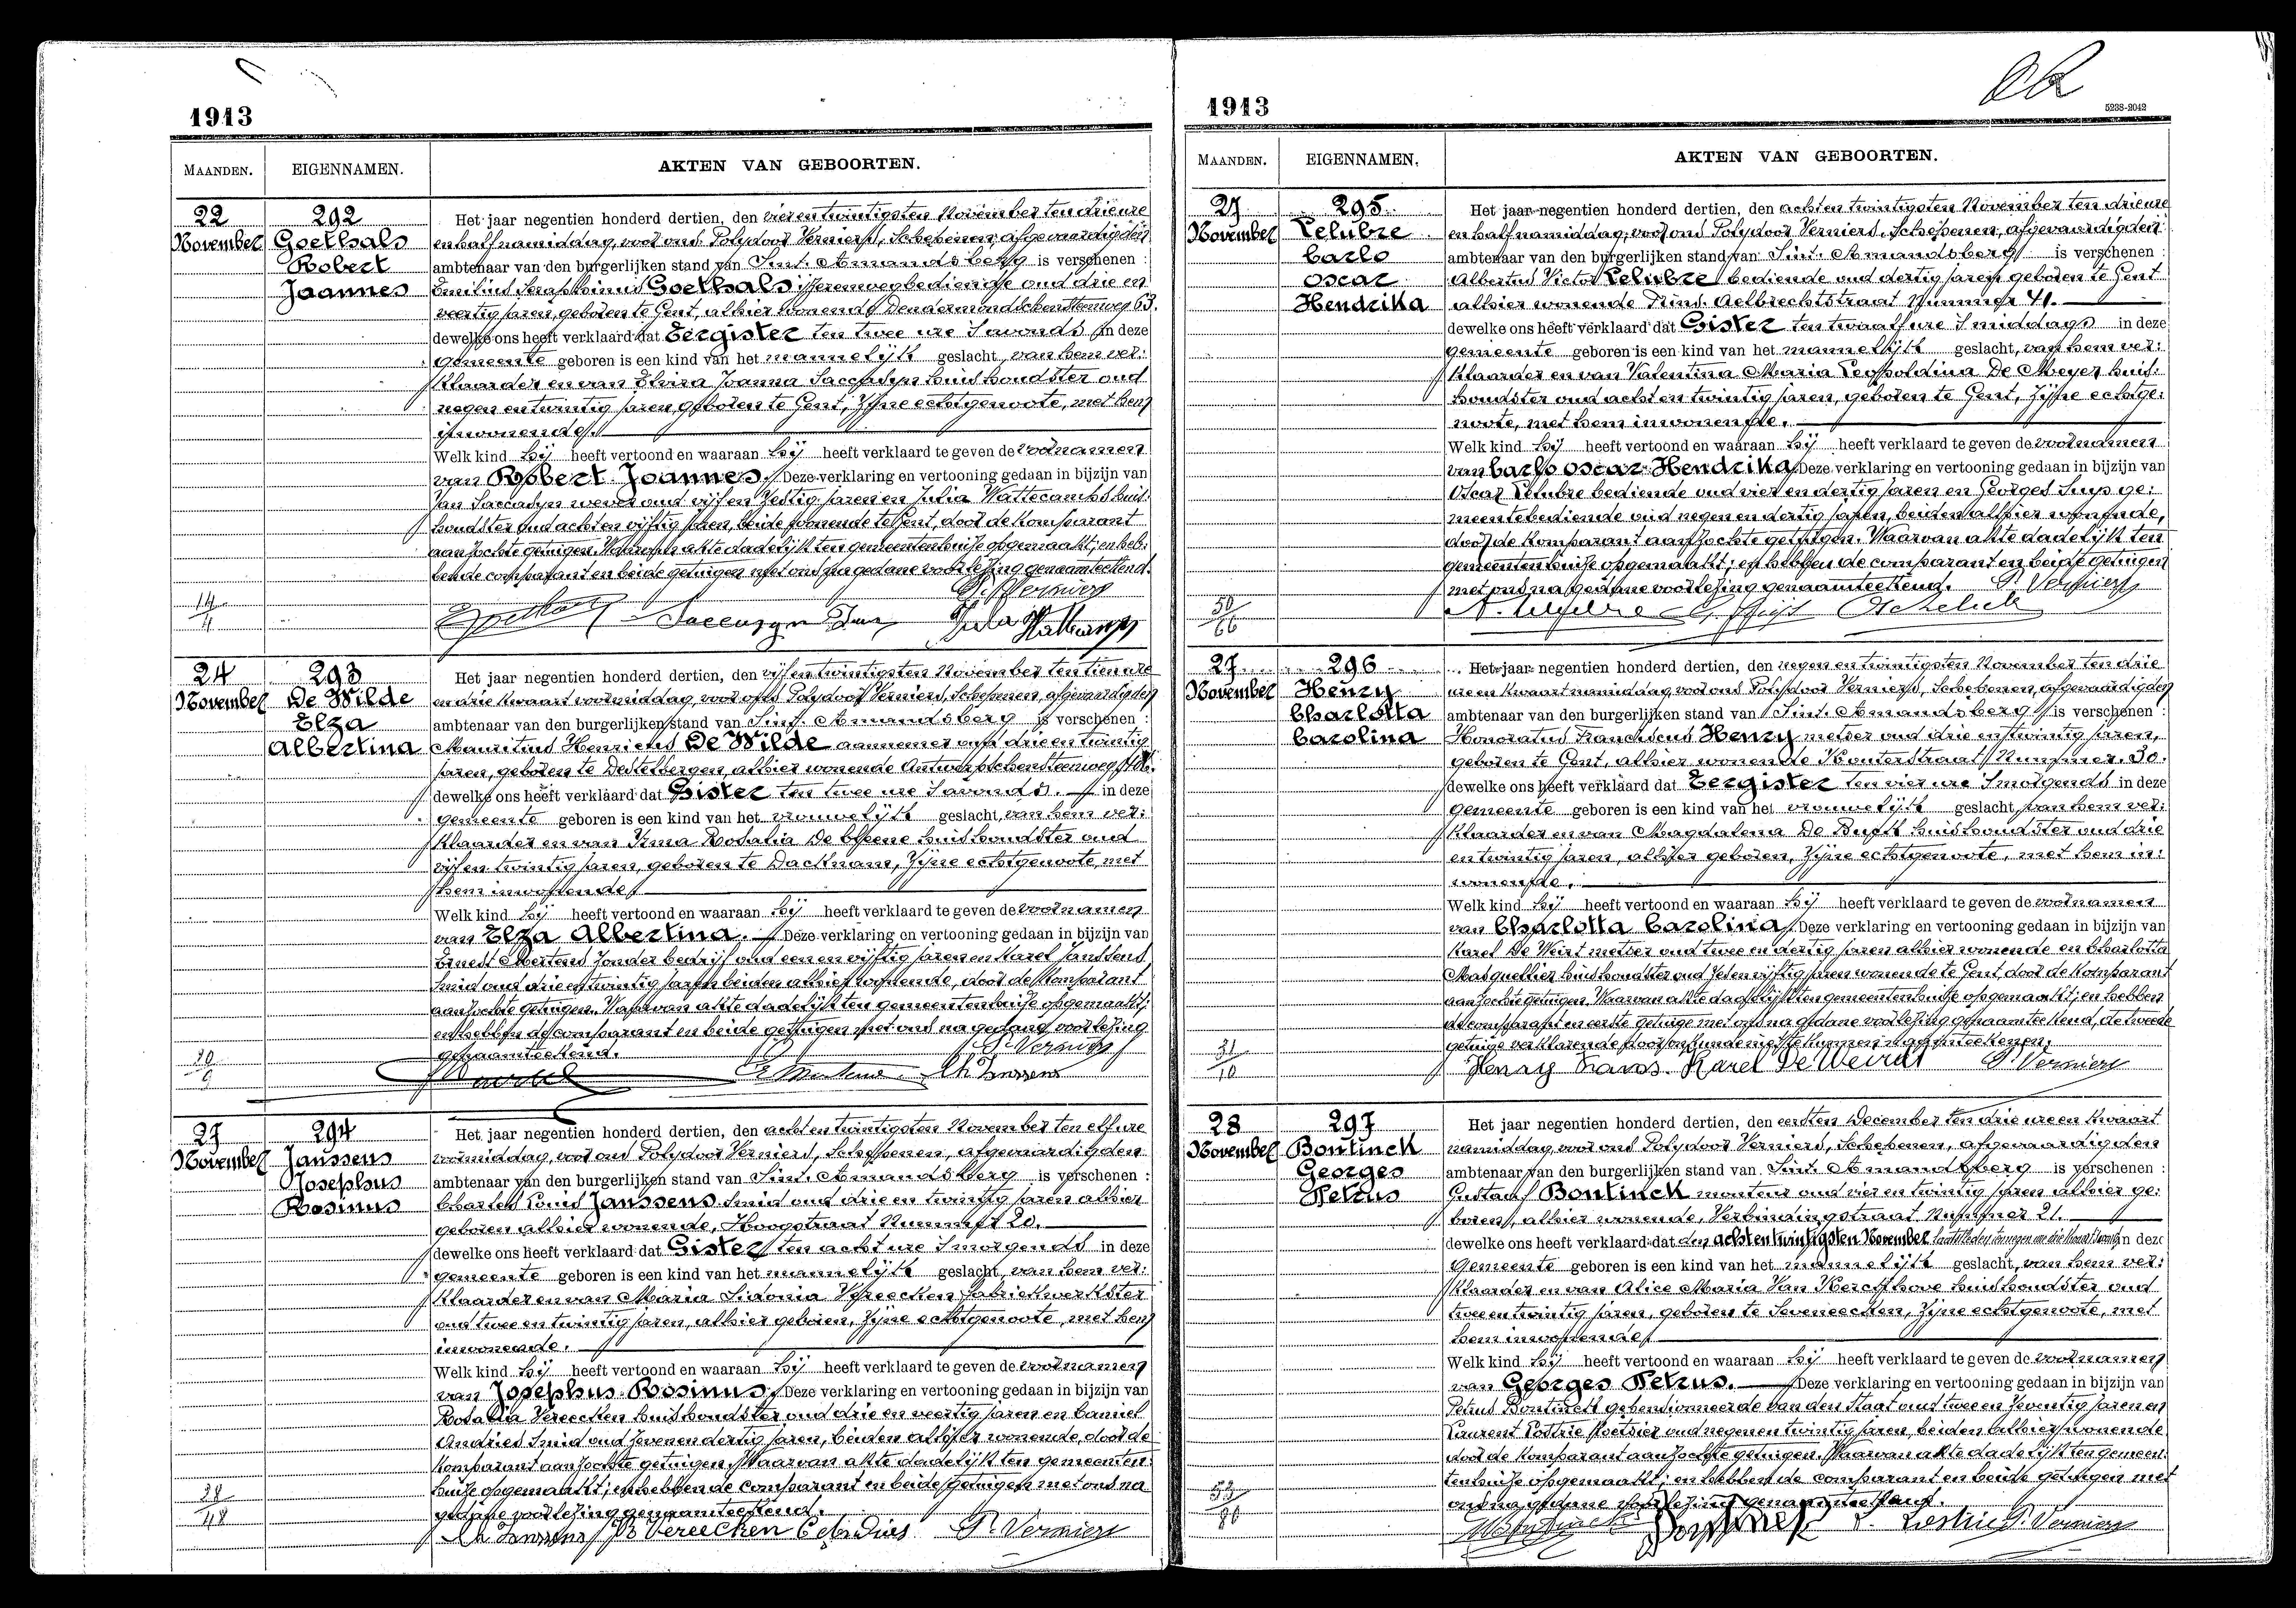 1913
MAANDEN. EIGENNAMEN. AKTEN VAN GEBOORTEN.
22 292 Het jaar negentien honderd dertien, den vier en twintigsten November ten drie ure
November Goethals en half namiddag, voor ons Polydoor Verniers, Schepenen, afgevaardigden
Robert ambtenaar van den burgerlijken stand van Sint. Amandsberg is verschenen :
Joannes Emilius Seraphinus Goethals ijzerenwegbediende oud drie en
veertig jaren, geboren te Gent, alhier wonende Dendermondschensteenweg 63.
dewelke ons heeft verklaard dat Eergister ten twee ure 's avonds in deze
gemeente geboren is een kind van het mannelijk geslacht, van hem ver:
klaarder en van Elvira Joanna Saccasyn huishoudster oud
negen en twintig jaren, geboren te Gent, zijne echtgenoote, met hem
inwonende.
Welk kind hij heeft vertoond en waaraan hij heeft verklaard te geven de voornamen
van Robert Joannes. Deze verklaring en vertooning gedaan in bijzijn van
Jan Saccasyn wever oud vijf en zestig jaren en Julia Wattecamps huis:
houdster oud acht en vijftig jaren, beide wonende te Gent, door de komparant
aanzochte getuigen. Waarvan akte dadelijk ten gemeentenhuize opgemaakt; en heb:
bende comparant en beide getuigen met ons na gedane voorlezing genaamteekend.
P. Verniers
14/4 Saccasyn Jan Julia Wattecamps
24 293 Het jaar negentien honderd dertien, den vijf en twintigsten November ten tien ure
November De Wilde en drie kwaart voormiddag, voor ons Polydoor Verniers, Schepenen, afgevaardigden
Elza ambtenaar van den burgerlijken stand van Sint. Amandsberg is verschenen :
Albertina Mauritius Henricus De Wilde aannemer oud drie en twintig
jaren, geboren te Destelbergen, alhier wonende Antwerpschensteenweg
dewelke ons heeft verklaard dat Gister ten twee ure 's avonds. in deze
gemeente geboren is een kind van het vrouwelijk geslacht, van hem ver:
klaarder en van Irma Rosalia De huishoudster oud
vijf en twintig jaren, geboren te Dacknam, zijne echtgenoote, met
hem inwonende
Welk kind hij heeft vertoond en waaraan hij heeft verklaard te geven de voornamen
van Elza Albertina. Deze verklaring en vertooning gedaan in bijzijn van
Ernest Mertens zonder bedrijf oud een en vijftig jaren en Karel Janssens
smid oud drie en twintig jaren beiden alhier wonende, door de komparant
aanzochte getuigen. Waarvan akte dadelijk ten gemeentenhuize opgemaakt;
en hebben de comparant en beide getuigen met ons na gedane voorlezing
genaamteekend. P. Verniers
E. Mertens Ch Janssens
27 294 Het jaar negentien honderd dertien, den acht en twintigsten November ten elf ure
November Janssens voormiddag, voor ons Polydoor Verniers, Schepenen, afgevaardigden
Josephus ambtenaar van den burgerlijken stand van Sint. Amandsberg is verschenen :
Rosinus Charles Louis Janssens smid oud drie en twintig jaren alhier
geboren alhier wonende, Hoogstraat Nummer 20.
dewelke ons heeft verklaard dat Gister ten acht ure 's morgends in deze
gemeente geboren is een kind van het mannelijk geslacht, van hem ver:
klaarder en van Maria Sidonia Vereecken fabriekwerkster
oud twee en twintig jaren, alhier geboren, zijne echtgenoote, met hem
inwonende.
Welk kind hij heeft vertoond en waaraan hij heeft verklaard te geven de voornamen
van Josephus Rosinus. Deze verklaring en vertooning gedaan in bijzijn van
Rosalia Vereecken huishoudster oud drie en veertig jaren en Camiel
Andries smid oud zeven en dertig jaren, beiden alhier wonende, door de
komparant aanzochte getuigen. Waarvan akte dadelijk ten gemeenten:
huize opgemaakt; en hebben de comparant en beide getuigen met ons na
gedane voorlezing genaamteekend.
38/48 Ch Janssens R Vereecken P. Verniers
1913
5238-2042
MAANDEN. EIGENNAMEN. AKTEN VAN GEBOORTEN.
27 295 Het jaar negentien honderd dertien, den acht en twintigsten November ten drie ure
November Lelubre en half namiddag, voor ons Polydoor Verniers, Schepenen, afgevaardigden
Carlo ambtenaar van den burgerlijken stand van Sint. Amandsberg is verschenen :
Oscar Albertus Victor Lelubre bediende oud dertig jaren geboren te Gent
Hendrika alhier wonende Prins. Aelbrechtstraat Nummer 41.
dewelke ons heeft verklaard dat Gister ten twaalf ure 's middags in deze
gemeente geboren is een kind van het mannelijk geslacht, van hem ver:
klaarder en van Valentina Maria Leopoldina De Meyer huis:
houdster oud acht en twintig jaren, geboren te Gent, zijne echtge:
noote, met hem inwonende.
Welk kind hij heeft vertoond en waaraan hij heeft verklaard te geven de voornamen
van Carlo Oscar Hendrika. Deze verklaring en vertooning gedaan in bijzijn van
Oscar Lelubre bediende oud vier en dertig jaren en Georges ge:
meentebediende oud negen en dertig jaren, beiden alhier wonende,
door de komparant aanzochte getuigen. Waarvan akte dadelijk ten
gemeentenhuize opgemaakt; en hebben de comparant en beide getuigen
met ons na gedane voorlezing genaamteekend. P. Verniers
50/66 A. Lelubre
27 296 Het jaar negentien honderd dertien, den negen en twintigsten November ten drie
November Henry ure en kwaart namiddag voor ons Polydoor Verniers, Schepenen, afgevaardigden
Charlotta ambtenaar van den burgerlijken stand van Sint. Amandsberg is verschenen :
Carolina Honoratus Franciscus Henry metser oud drie en twintig jaren,
geboren te Gent, alhier wonende Kouterstraat Nummer. 30.
dewelke ons heeft verklaard dat Eergister ten vier ure 's morgends in deze
gemeente geboren is een kind van het vrouwelijk geslacht, van hem ver:
klaarder en van Magdalena De huishoudster oud drie
en twintig jaren, alhier geboren, zijne echtgenoote, met hem in:
wonende.
Welk kind hij heeft vertoond en waaraan hij heeft verklaard te geven de voornamen
van Charlotta Carolina. Deze verklaring en vertooning gedaan in bijzijn van
Karel De Weirt metser oud twee en dertig jaren alhier wonende en Charlotta
Masquellier huishoudster oud zes en vijftig jaren wonende te Gent, door de komparant
aanzochte getuigen. Waarvan akte dadelijk ten gemeentenhuize opgemaakt; en hebben
de comparant en eerste getuige met ons na gedane voorlezing genaamteekend, de tweede
getuige verklarende door onkunde niet te kunnen naamteekenen.
31/10 Henry Frans. Karel De Weirdt P. Verniers
28 297 Het jaar negentien honderd dertien, den eersten December ten drie ure en kwaart
November Bontinck namiddag, voor ons Polydoor Verniers, Schepenen, afgevaardigden
Georges ambtenaar van den burgerlijken stand van Sint. Amandsberg is verschenen :
Petrus Gustaaf Bontinck monteur oud vier en twintig jaren alhier ge:
boren, alhier wonende, Verbindingstraat Nummer 21.
dewelke ons heeft verklaard dat den achtentwintigsten November in deze
gemeente geboren is een kind van het mannelijk geslacht, van hem ver:
klaarder en van Alice Maria Van Kerckhove huishoudster oud
twee en twintig jaren, geboren te Seveneecken, zijne echtgenoote, met
hem inwonende
Welk kind hij heeft vertoond en waaraan hij heeft verklaard te geven de voornamen
van Georges Petrus. Deze verklaring en vertooning gedaan in bijzijn van
Petrus Bontinck gepensionneerde van den Staat oud twee en zeventig jaren en
Laurent Lostrie oud negen en twintig jaren, beiden alhier wonende
door de komparant aanzochte getuigen. Waarvan akte dadelijk ten gemeen:
tenhuize opgemaakt; en hebben de comparant en beide getuigen met
ons na gedane voorlezing genaamteekend.
53/86 L. Lostrie P. Verniers